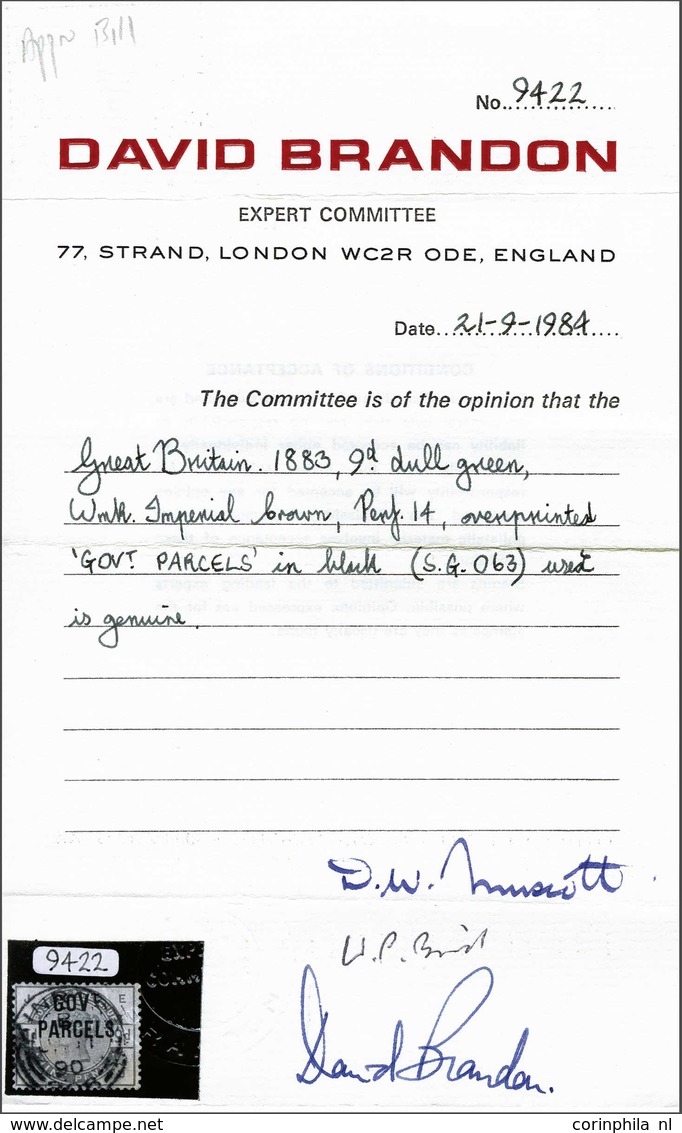 Appn Bill
No. 9422
DAVID BRANDON
EXPERT COMMITTEE
77, STRAND, LONDON WC2R ODE, ENGLAND
Date 21-9-1984
CONDITIONS OF ACCEPTANCE
The Committee is of the opinion that the
Great Britain. 1883, 9d dull green,
Wmk. Imperial Crown, Perf. 14, overprinted
'GOVT. PARCELS' in black (S.G. O63) used
is genuine.
D.W. Muscott
David Brandon.
9422
GOVT
PARCELS
90
corinphila nl